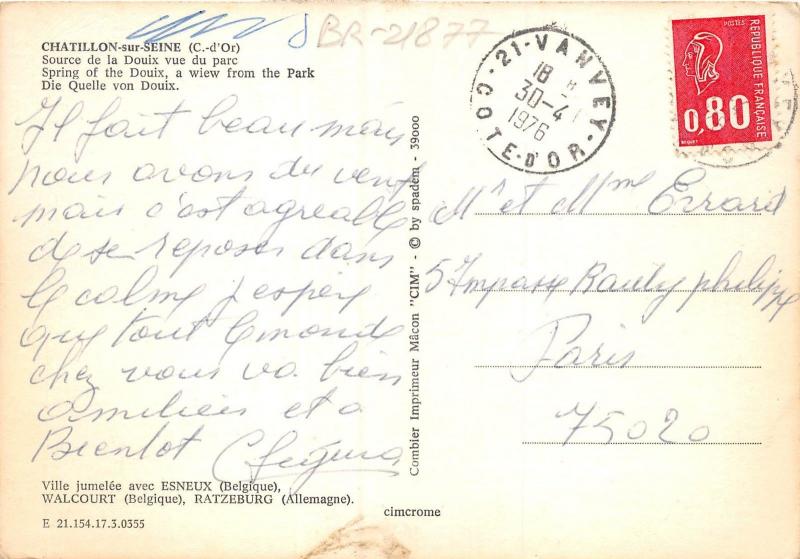 BR-21877
CHATILLON-sur-SEINE (C.-d'Or)
Source de la Douix vue du parc
Spring of the Douix, a wiew from the Park
Die Quelle von Douix.
Il fait beau mais
nous avons du vent
mais c'est agreable
de se reposer dans
le calme j'espere
que tout le monde
chez vous va bien
Amitiés et a
Bientot
Ville jumelée avec ESNEUX (Belgique),
WALCOURT (Belgique), RATZEBURG (Allemagne).
E 21.154.17.3.0355
cimcrome
Combier Imprimeur Mâcon "CIM" - © by spadem - 39000
21-VANVEY
18 H
30-4
1976
COTE-D'OR
POSTES
REPUBLIQUE FRANÇAISE
0,80
BEQUET
Mr et Mme Evrard
5 Impasse Rauly philippe
Paris
75020